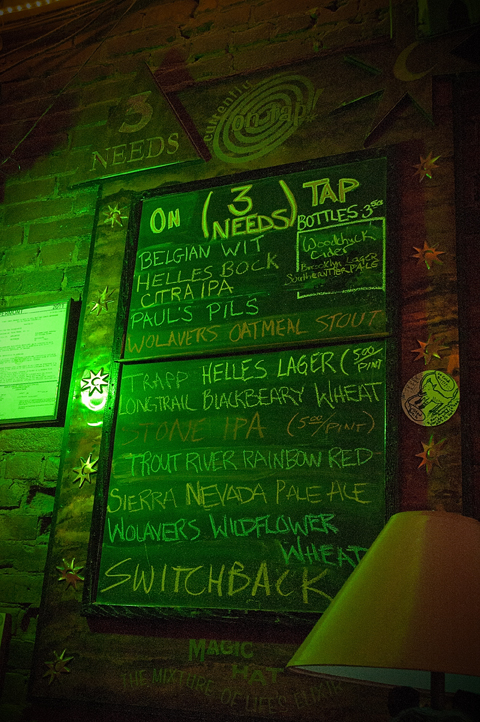 3
NEEDS
authentic
on tap!
ON (3 NEEDS) TAP
BOTTLES 3.50
Woodchuck
Cider
Brooklyn Lager
Southern Tier PALE
BELGIAN WIT
HELLES BOCK
CITRA IPA
PAUL'S PILS
WOLAVERS OATMEAL STOUT
TRAPP HELLES LAGER (5.00/PINT
LONGTRAIL BLACKBEARY WHEAT
STONE IPA (5.00/PINT)
TROUT RIVER RAINBOW RED
SIERRA NEVADA PALE ALE
WOLAVERS WILDFLOWER
WHEAT
SWITCHBACK
MAGIC
HAT
THE MIXTURE OF LIFE'S ELIXIR